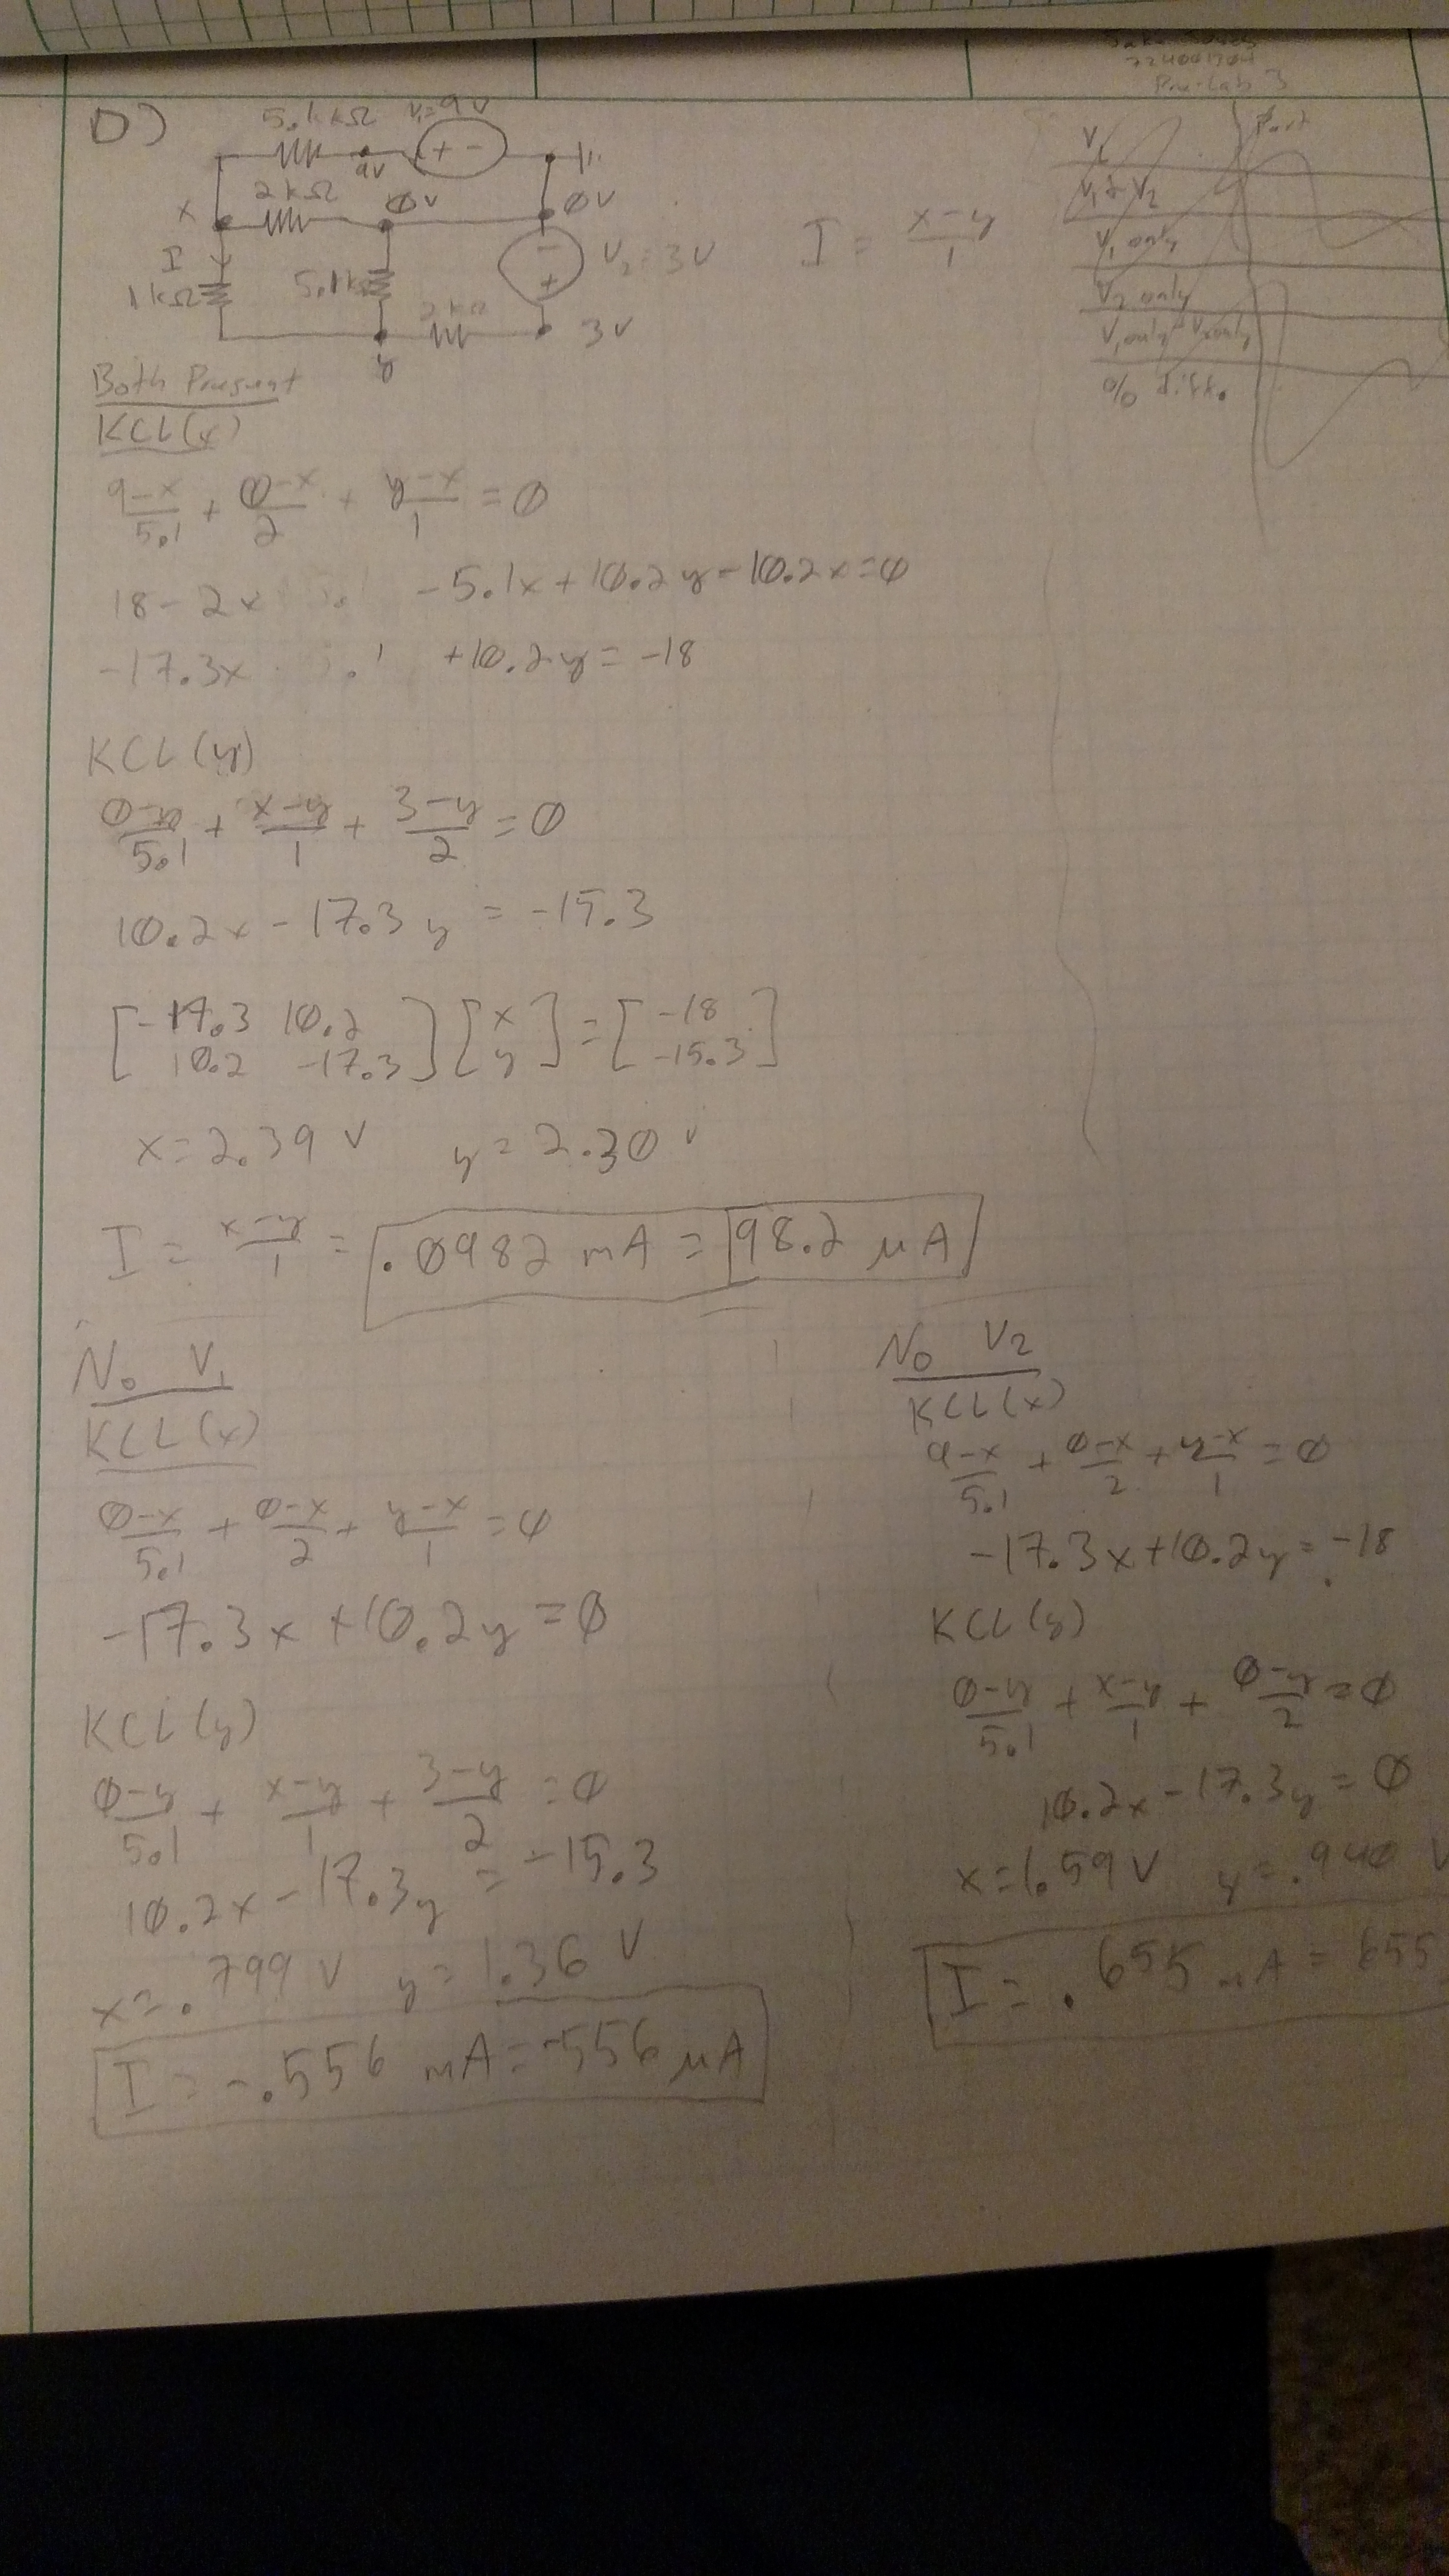 Pre-Lab 3
D)
5.1kΩ V₁=9V
9V
2kΩ ∅V ∅V
x
I
1kΩ 5.1kΩ V₂=3V
2kΩ 3V
y
I = (x-y)/1
V₁ Part
V₁ & V₂
V₁ only
V₂ only
V₁ only - V₂ only
% diff.
Both Present
KCL(x)
(9-x)/5.1 + (∅-x)/2 + (y-x)/1 = ∅
18-2x -5.1x+10.2y-10.2x=∅
-17.3x +10.2y=-18
KCL(y)
(∅-y)/5.1 + (x-y)/1 + (3-y)/2 = ∅
10.2x-17.3y = -15.3
[-17.3 10.2] [x] = [-18]
[10.2 -17.3] [y] [-15.3]
x=2.39 V y=2.30 V
I = (x-y)/1 = .0982 mA = 98.2 μA
No V₁
KCL(x)
(∅-x)/5.1 + (∅-x)/2 + (y-x)/1 = ∅
-17.3x+10.2y=∅
KCL(y)
(∅-y)/5.1 + (x-y)/1 + (3-y)/2 = ∅
10.2x-17.3y = -15.3
x=.799 V y=1.36 V
I = -.556 mA = -556 μA
No V₂
KCL(x)
(9-x)/5.1 + (∅-x)/2 + (y-x)/1 = ∅
-17.3x+10.2y=-18
KCL(y)
(∅-y)/5.1 + (x-y)/1 + (∅-y)/2 = ∅
10.2x-17.3y=∅
x=1.59V y=.940 V
I = .655 mA = 655